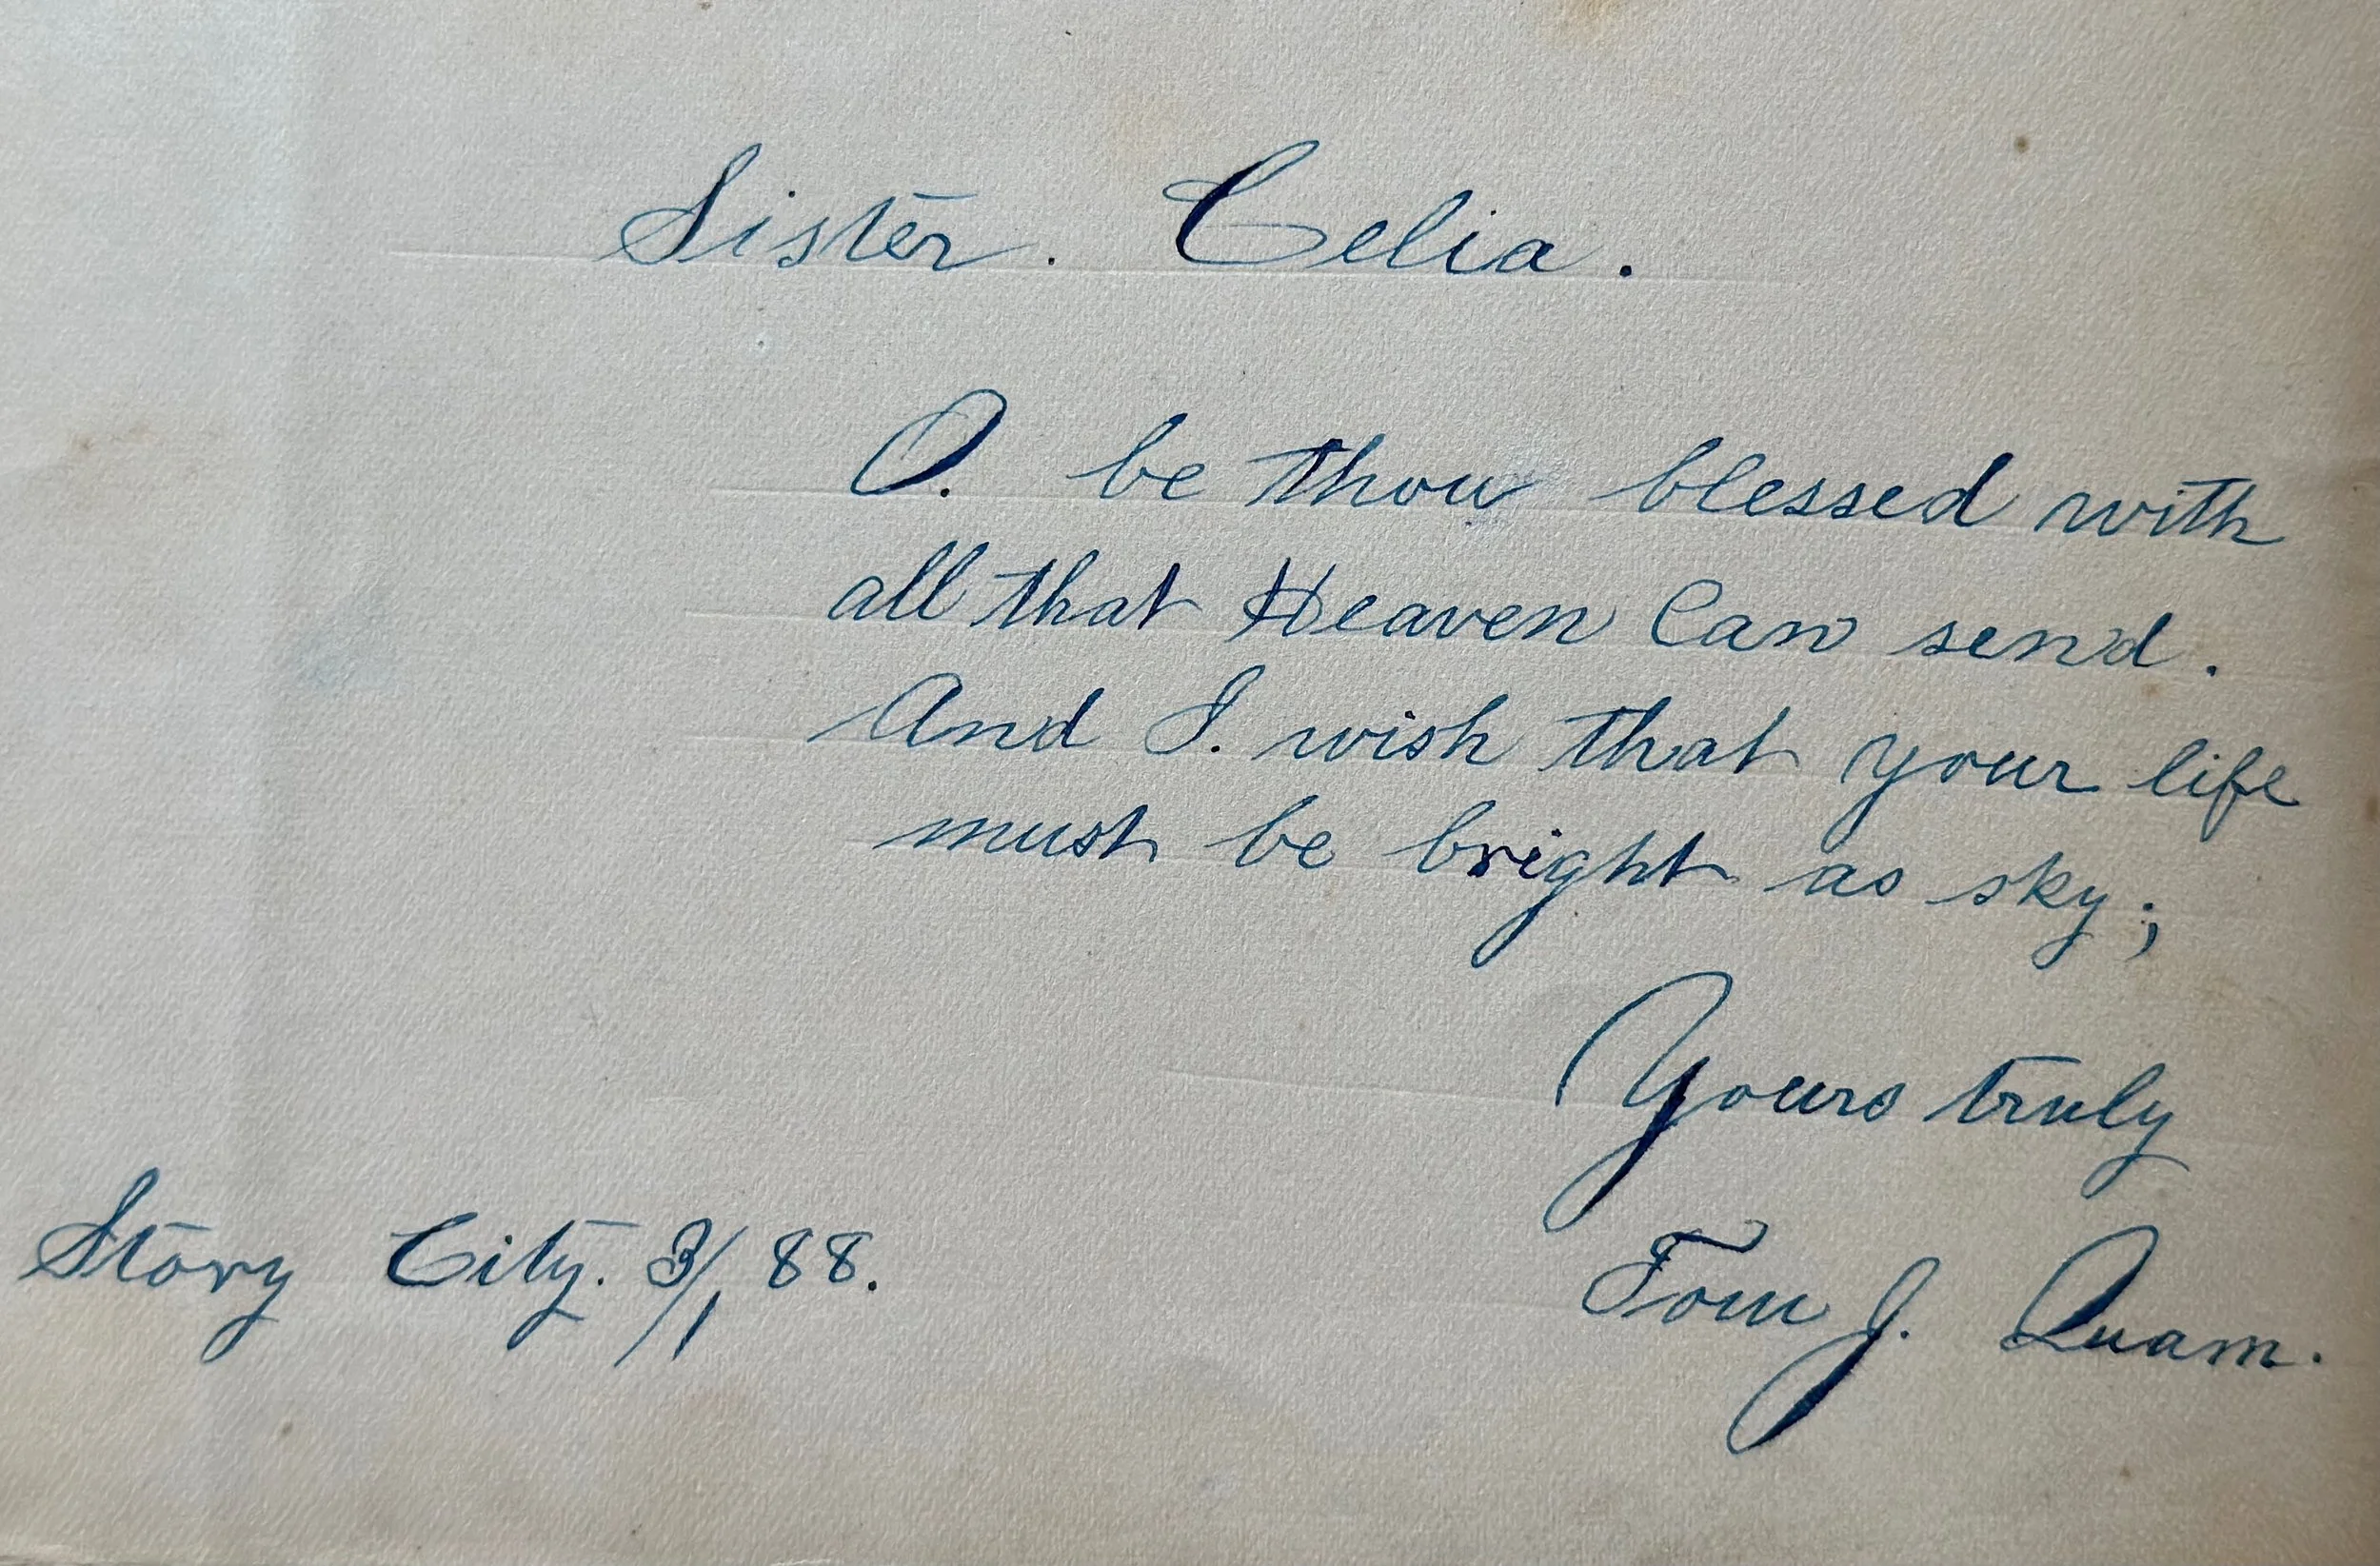 Sister. Celia.
O. be thou blessed with
all that Heaven Can send.
And I. wish that your life
must be bright as sky;
Yours truly
Tom J. Quam.
Story City. 3/1 88.